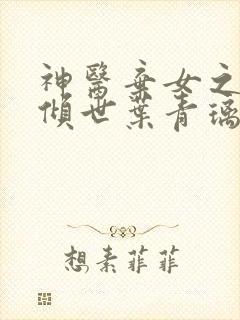 神醫棄女之
傾世葉青璃
想素菲菲